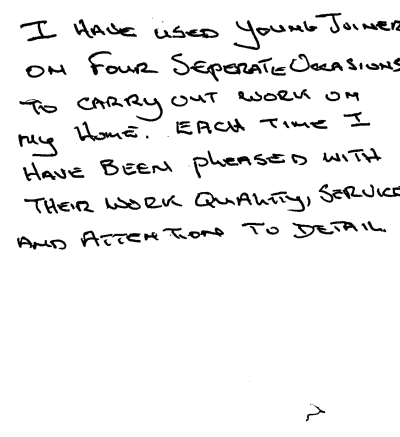 I HAVE USED YOUNG JOINER
ON FOUR SEPERATE OCCASIONS
TO CARRY OUT WORK ON
MY HOME. EACH TIME I
HAVE BEEN PLEASED WITH
THEIR WORK QUALITY, SERVICE
AND ATTENTION TO DETAIL